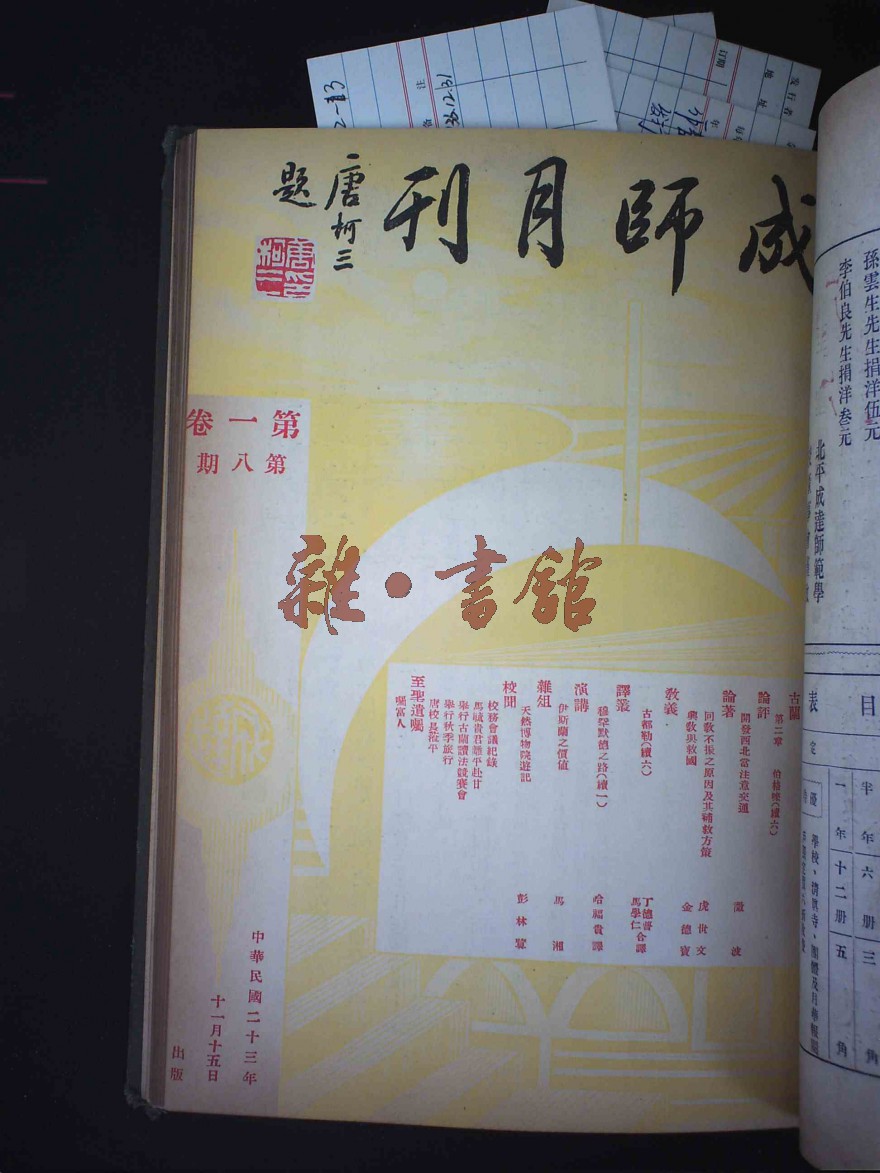 成師月刊
唐柯三
題
第一卷
第八期
雜·書館
古蘭
第二章 伯格喇(續六)
論評
開發西北當注意交通 澂波
論著
回教不振之原因及其補救方策 虎世文
興教與救國 金德寶
教義
古都勒(續六) 丁德普 馬學仁 合譯
譯叢
穆罕默德之路(續一) 哈福貴譯
演講
伊斯蘭之價值 馬湘
雜俎
天然博物院遊記 彭林鷺
校聞
校務會議紀錄
馬誠貴君離平赴甘
舉行古蘭讀法競賽會
舉行秋季旅行
唐校長蒞平
至聖遺囑
囑富人
中華民國二十三年
十一月十五日
出版
孫雲生先生捐洋伍元
李伯良先生捐洋叁元
北平成達師範學
目
表
定
半年六册三角
一年十二册五角
優
學校，清真寺，團體及月華